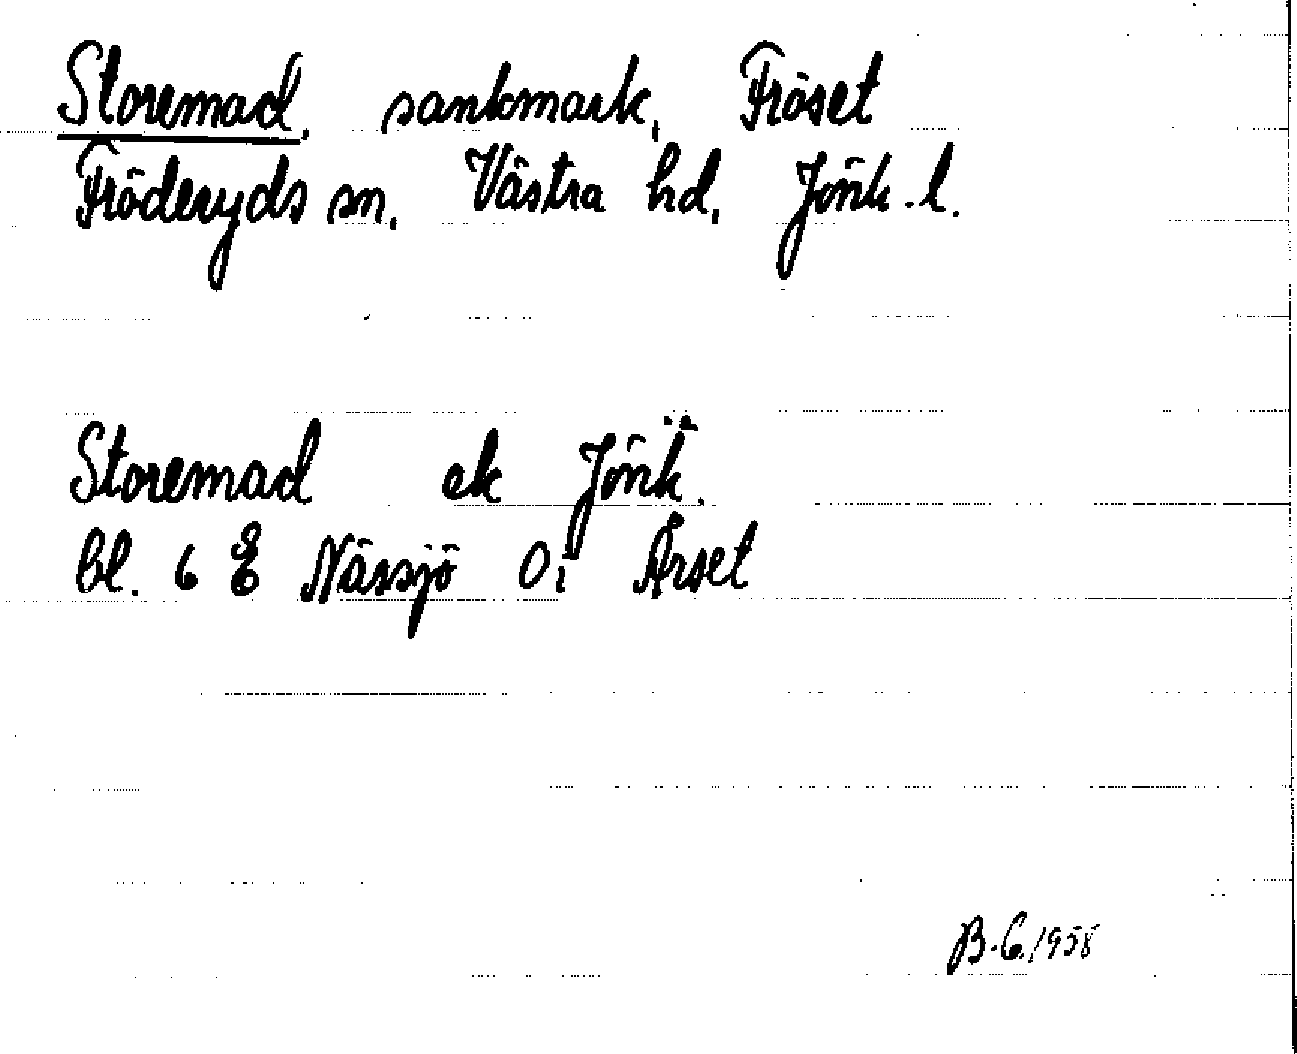 Storemad, sankmark, Fröset
Fröderyds sn, Västra hd, Jönk.l.
Storemad ek Jönk.
bl. 6 E Nässjö 0i Årset
B.G. 1958